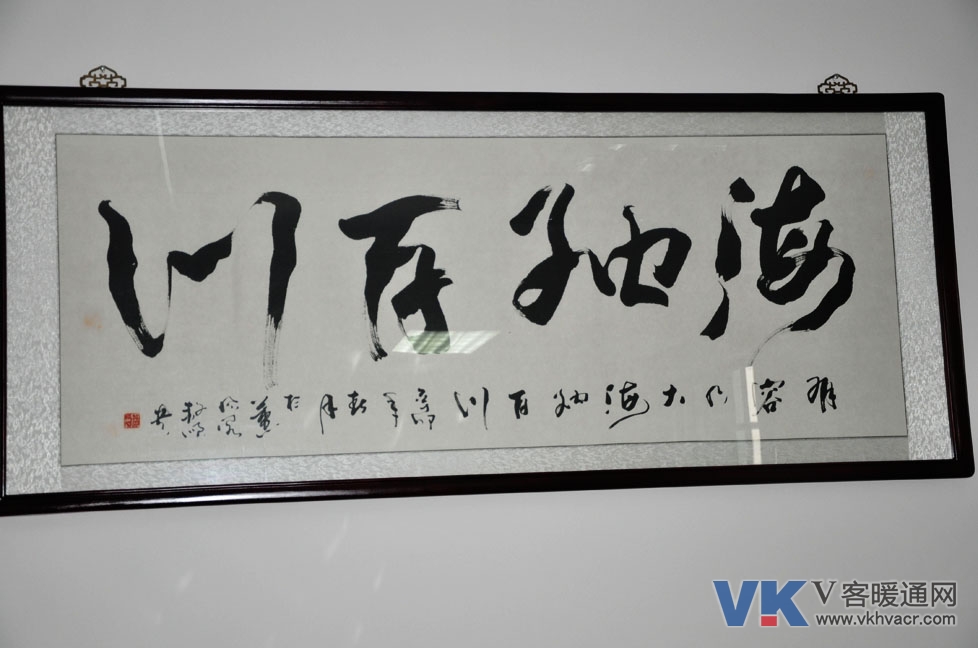 海纳百川
有容乃大海纳百川
VK V客暖通网
www.vkhvacr.com